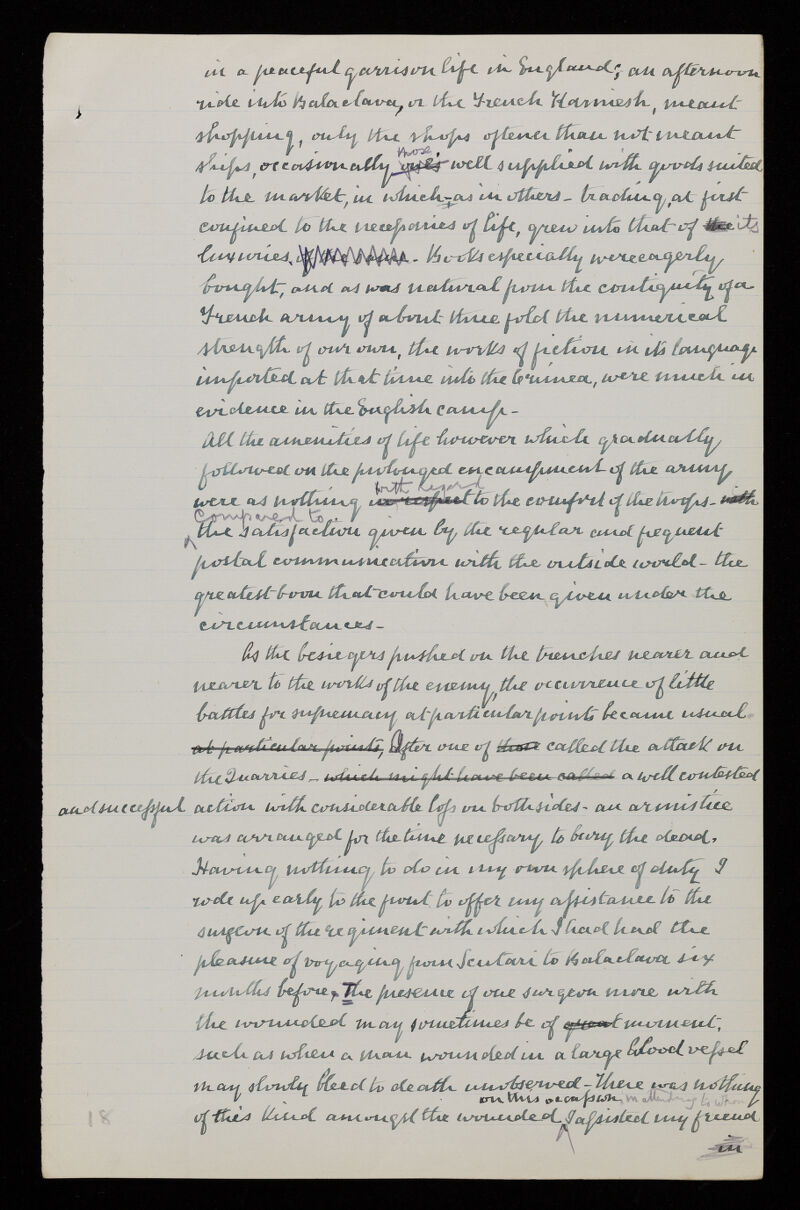 in a peaceful garrison life in England; an afternoon
ride into Balaclava, or the French Kamiesh, meant
shopping, only the shops oftener than not meant
those
ships, occasionally ones well supplied with goods suited
to the market, in which, as in others - trading, at first
confined to the necessaries of life, grew into that of the its
luxuries. of the same - Books especially were eagerly
bought, and as was natural from the contiguity of a
French army of about three fold the numerical
strength of our own, the works of fiction in its language
imported at that time into the Crimea, were much in
evidence in the English camp -
All the amenities of life however which gradually
followed on the prolonged encampment of the army
with regard
were as nothing in respect to the comfort of the troops - with
compared to
the satisfaction given by the regular and frequent
postal communication with the outside world - the
greatest boon that could have been given under the
circumstances -
As the besiegers pushed on the trenches nearer and
nearer to the works of the enemy, the occurrence of little
battles for supremacy at particular points became usual.
at particular points, After one of those called the attack on
the Quarries - which might have been called a well contested
and successful action with considerable loss on both sides - an armistice
was arranged for the time necessary to bury the dead.
Having nothing to do in my own sphere of duty I
rode up early to the front to offer my assistance to the
surgeon of the regiment with which I had had the
pleasure of voyaging from Scutari to Balaclava six
months before. The presence of one surgeon more with
the wounded may sometimes be of great moment,
such as when a man wounded in a large blood vessel
may slowly bleed to death unobserved - There was nothing
on this occasion, in attending to whom
of this kind amongst the wounded I assisted my friend
in
18